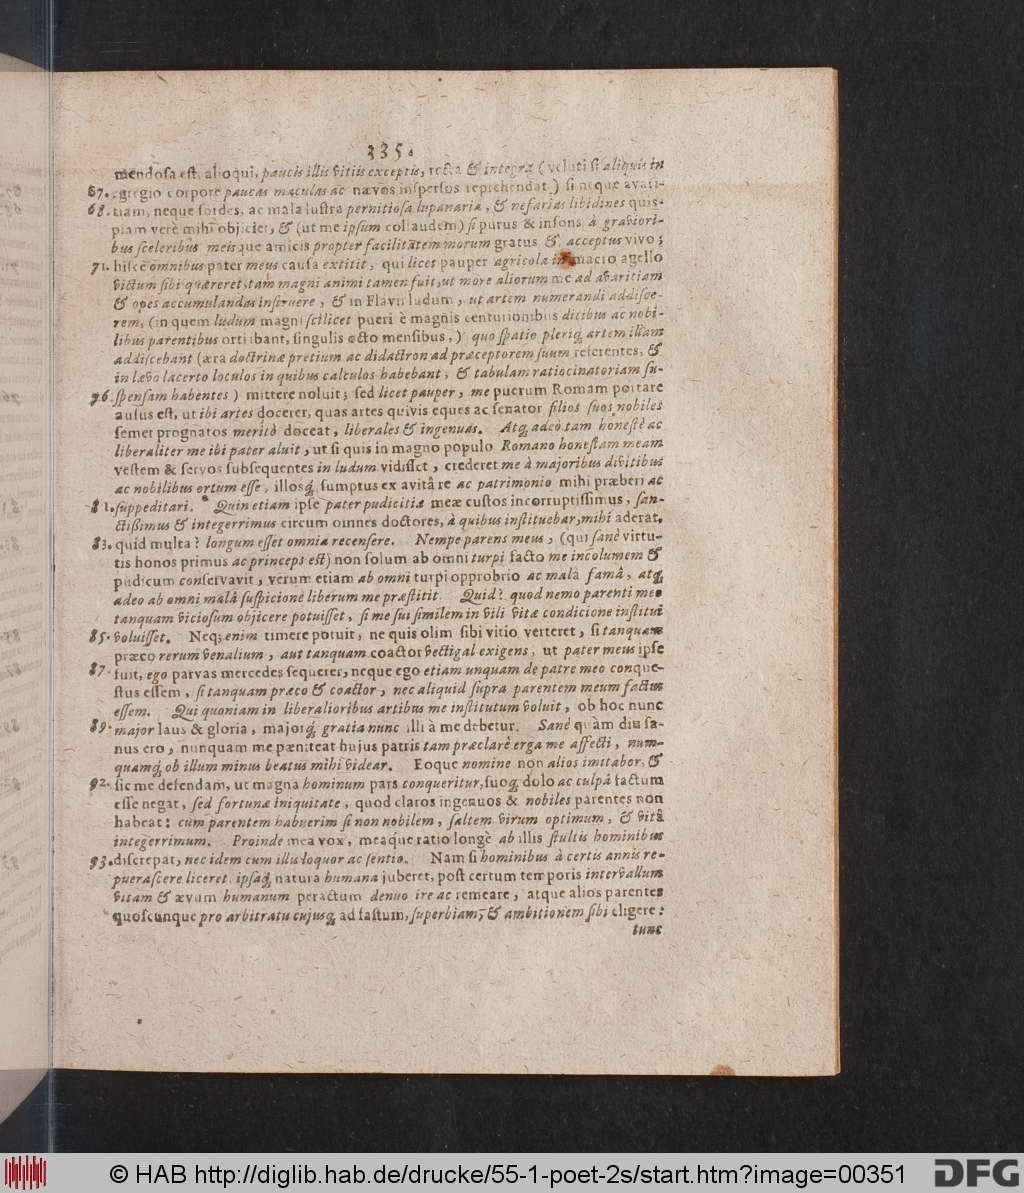 335.
mendosa est, alioqui, paucis illis vitiis exceptis, recta & integra (veluti si aliquis in
67. egregio corpore paucas maculas ac nævos inspersos reprehendat) si neque avari-
68. tiam, neque sordes, ac mala lustra pernitiosa lupanaria, & nefarias libidines quis-
piam verè mihi objiciet, & (ut me ipsum collaudem) si purus & insons à graviori-
bus sceleribus meisque amicis propter facilitatem morum gratus & acceptus vivo;
71. hisce omnibus pater meus causa extitit, qui licet pauper agricola in macro agello
victum sibi quæreret, tam magni animi tamen fuit, ut more aliorum me ad avaritiam
& opes accumulandas instruere, & in Flavii ludum, ut artem numerandi addisce-
rem, (in quem ludum magni scilicet pueri è magnis centurionibus ditibus ac nobi-
libus parentibus orti ibant, singulis octo mensibus,) quo spatio pleriq; artem illam
addiscebant (æra doctrinæ pretium ac didactron ad præceptorem suum referentes, &
in lævo lacerto loculos in quibus calculos habebant, & tabulam ratiocinatoriam su-
76. spensam habentes) mittere noluit; sed licet pauper, me puerum Romam portare
ausus est, ut ibi artes docerer, quas artes quivis eques ac senator filios suos nobiles
semet prognatos meritò doceat, liberales & ingenuas. Atq; adeò tam honestè ac
liberaliter me ibi pater aluit, ut si quis in magno populo Romano honestam meam
vestem & servos subsequentes in ludum vidisset, crederet me à majoribus divitibus
ac nobilibus ortum esse, illosq; sumptus ex avitâ re ac patrimonio mihi præberi ac
81. suppeditari. Quin etiam ipse pater pudicitiæ meæ custos incorruptissimus, san-
ctißimus & integerrimus circum omnes doctores, à quibus instituebar, mihi aderat.
83. quid multa? longum esset omnia recensere. Nempe parens meus, (qui sanè virtu-
tis honos primus ac princeps est) non solum ab omni turpi facto me incolumem &
pudicum conservavit, verum etiam ab omni turpi opprobrio ac malâ famâ, atq;
adeo ab omni malâ suspicione liberum me præstitit. Quid? quod nemo parenti meo
tanquam viciosum objicere potuisset, si me sui similem in vili vitæ condicione institui
85. voluisset. Neq; enim timere potuit, ne quis olim sibi vitio verteret, si tanquam
præco rerum venalium, aut tanquam coactor vectigal exigens, ut pater meus ipse
87. fuit, ego parvas mercedes sequerer, neque ego etiam unquam de patre meo conque-
stus essem, si tanquam præco & coactor, nec aliquid supra parentem meum factus
essem. Qui quoniam in liberalioribus artibus me institutum voluit, ob hoc nunc
89. major laus & gloria, majorq; gratia nunc illi à me debetur. Sanè quàm diu sa-
nus ero, nunquam me pæniteat hujus patris tam præclarè erga me affecti, num-
quamq; ob illum minus beatus mihi videar. Eoque nomine non alios imitabor, &
92. sic me defendam, ut magna hominum pars conqueritur, suoq; dolo ac culpâ factum
esse negat, sed fortunæ iniquitate, quod claros ingenuos & nobiles parentes non
habeat: cùm parentem habuerim si non nobilem, saltem virum optimum, & vitâ
integerrimum. Proinde mea vox, meaque ratio longè ab illis stultis hominibus
93. discrepat, nec idem cum illis loquor ac sentio. Nam si hominibus à certis annis re-
puerascere liceret, ipsaq; natura humana juberet, post certum temporis intervallum
vitam & ævum humanum peractum denuo ire ac remeare, atque alios parentes
quoscunque pro arbitratu cujusq; ad fastum, superbiam, & ambitionem sibi eligere:
tunc
© HAB http://diglib.hab.de/drucke/55-1-poet-2s/start.htm?image=00351
DFG